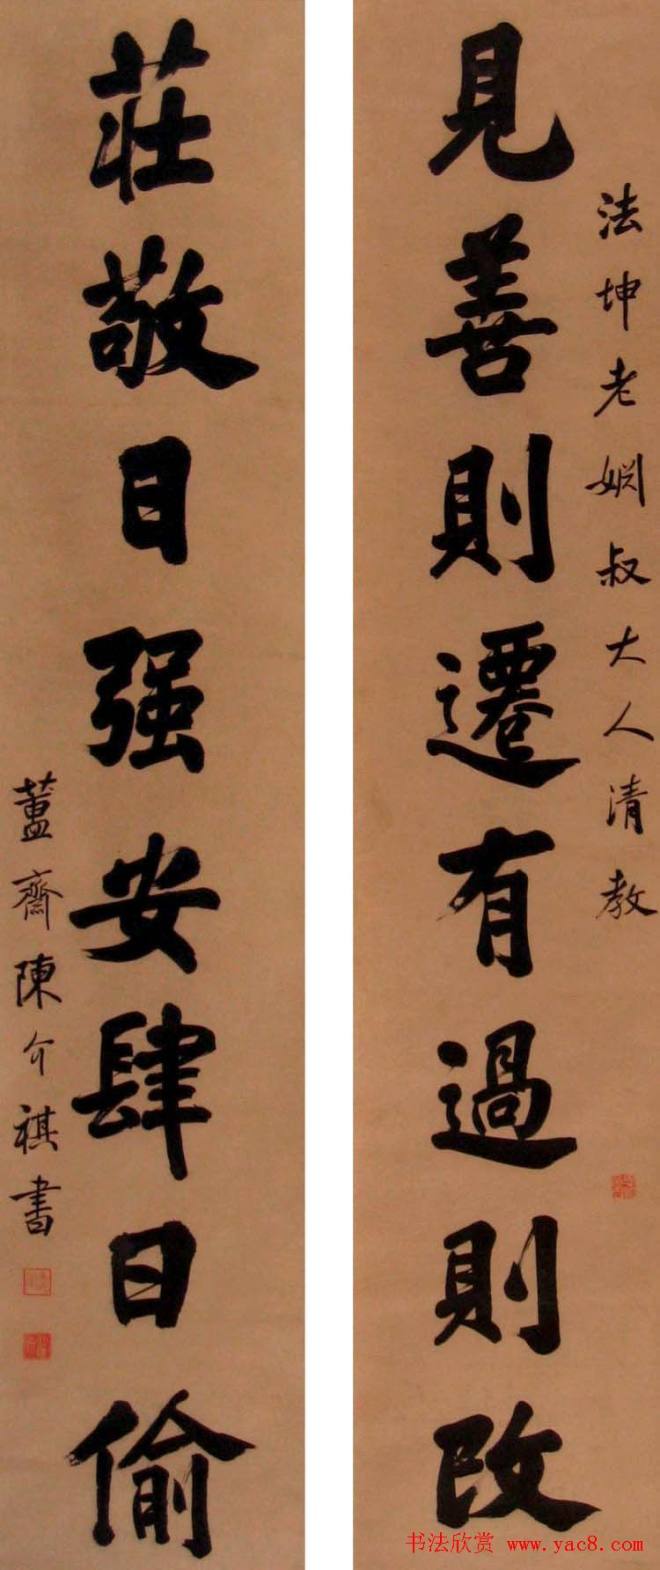 法坤老婣叔大人清教
見善則遷有過則改
莊敬日强安肆日偷
簠齋陳介祺書
书法欣赏 www.yac8.com